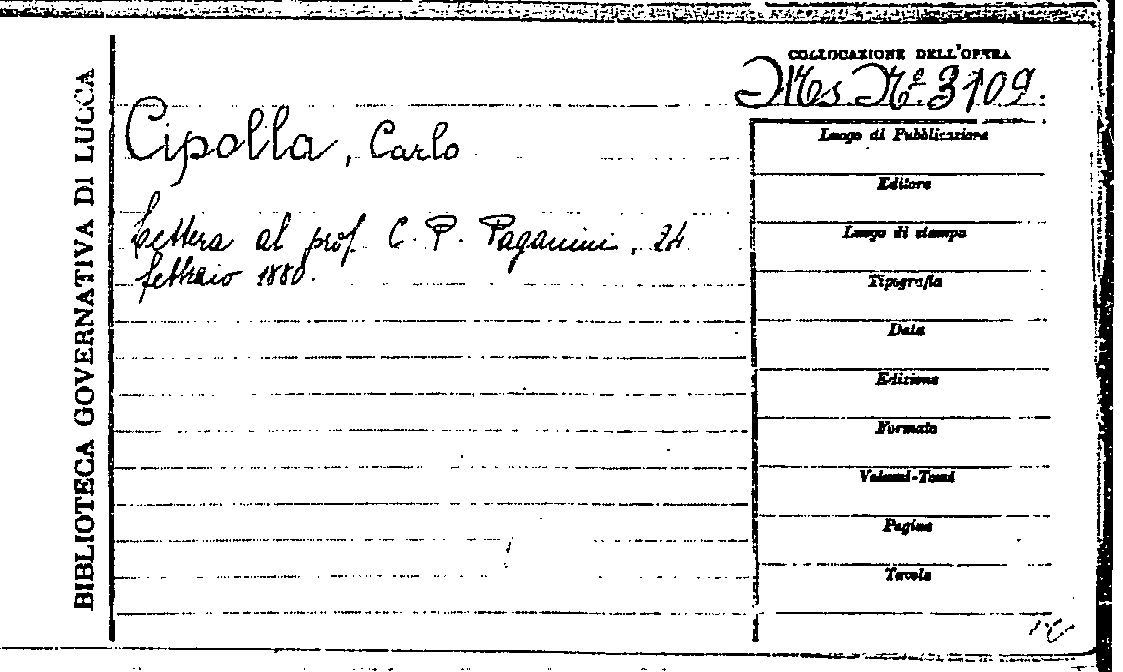 BIBLIOTECA GOVERNATIVA DI LUCCA
COLLOCAZIONE DELL'OPERA
Ms. N.º 3109.
Cipolla, Carlo
Lettera al prof. C. P. Paganini, 24
febbraio 1880.
Luogo di Pubblicazione
Editore
Luogo di stampa
Tipografia
Data
Edizione
Formato
Volumi-Tomi
Pagine
Tavole